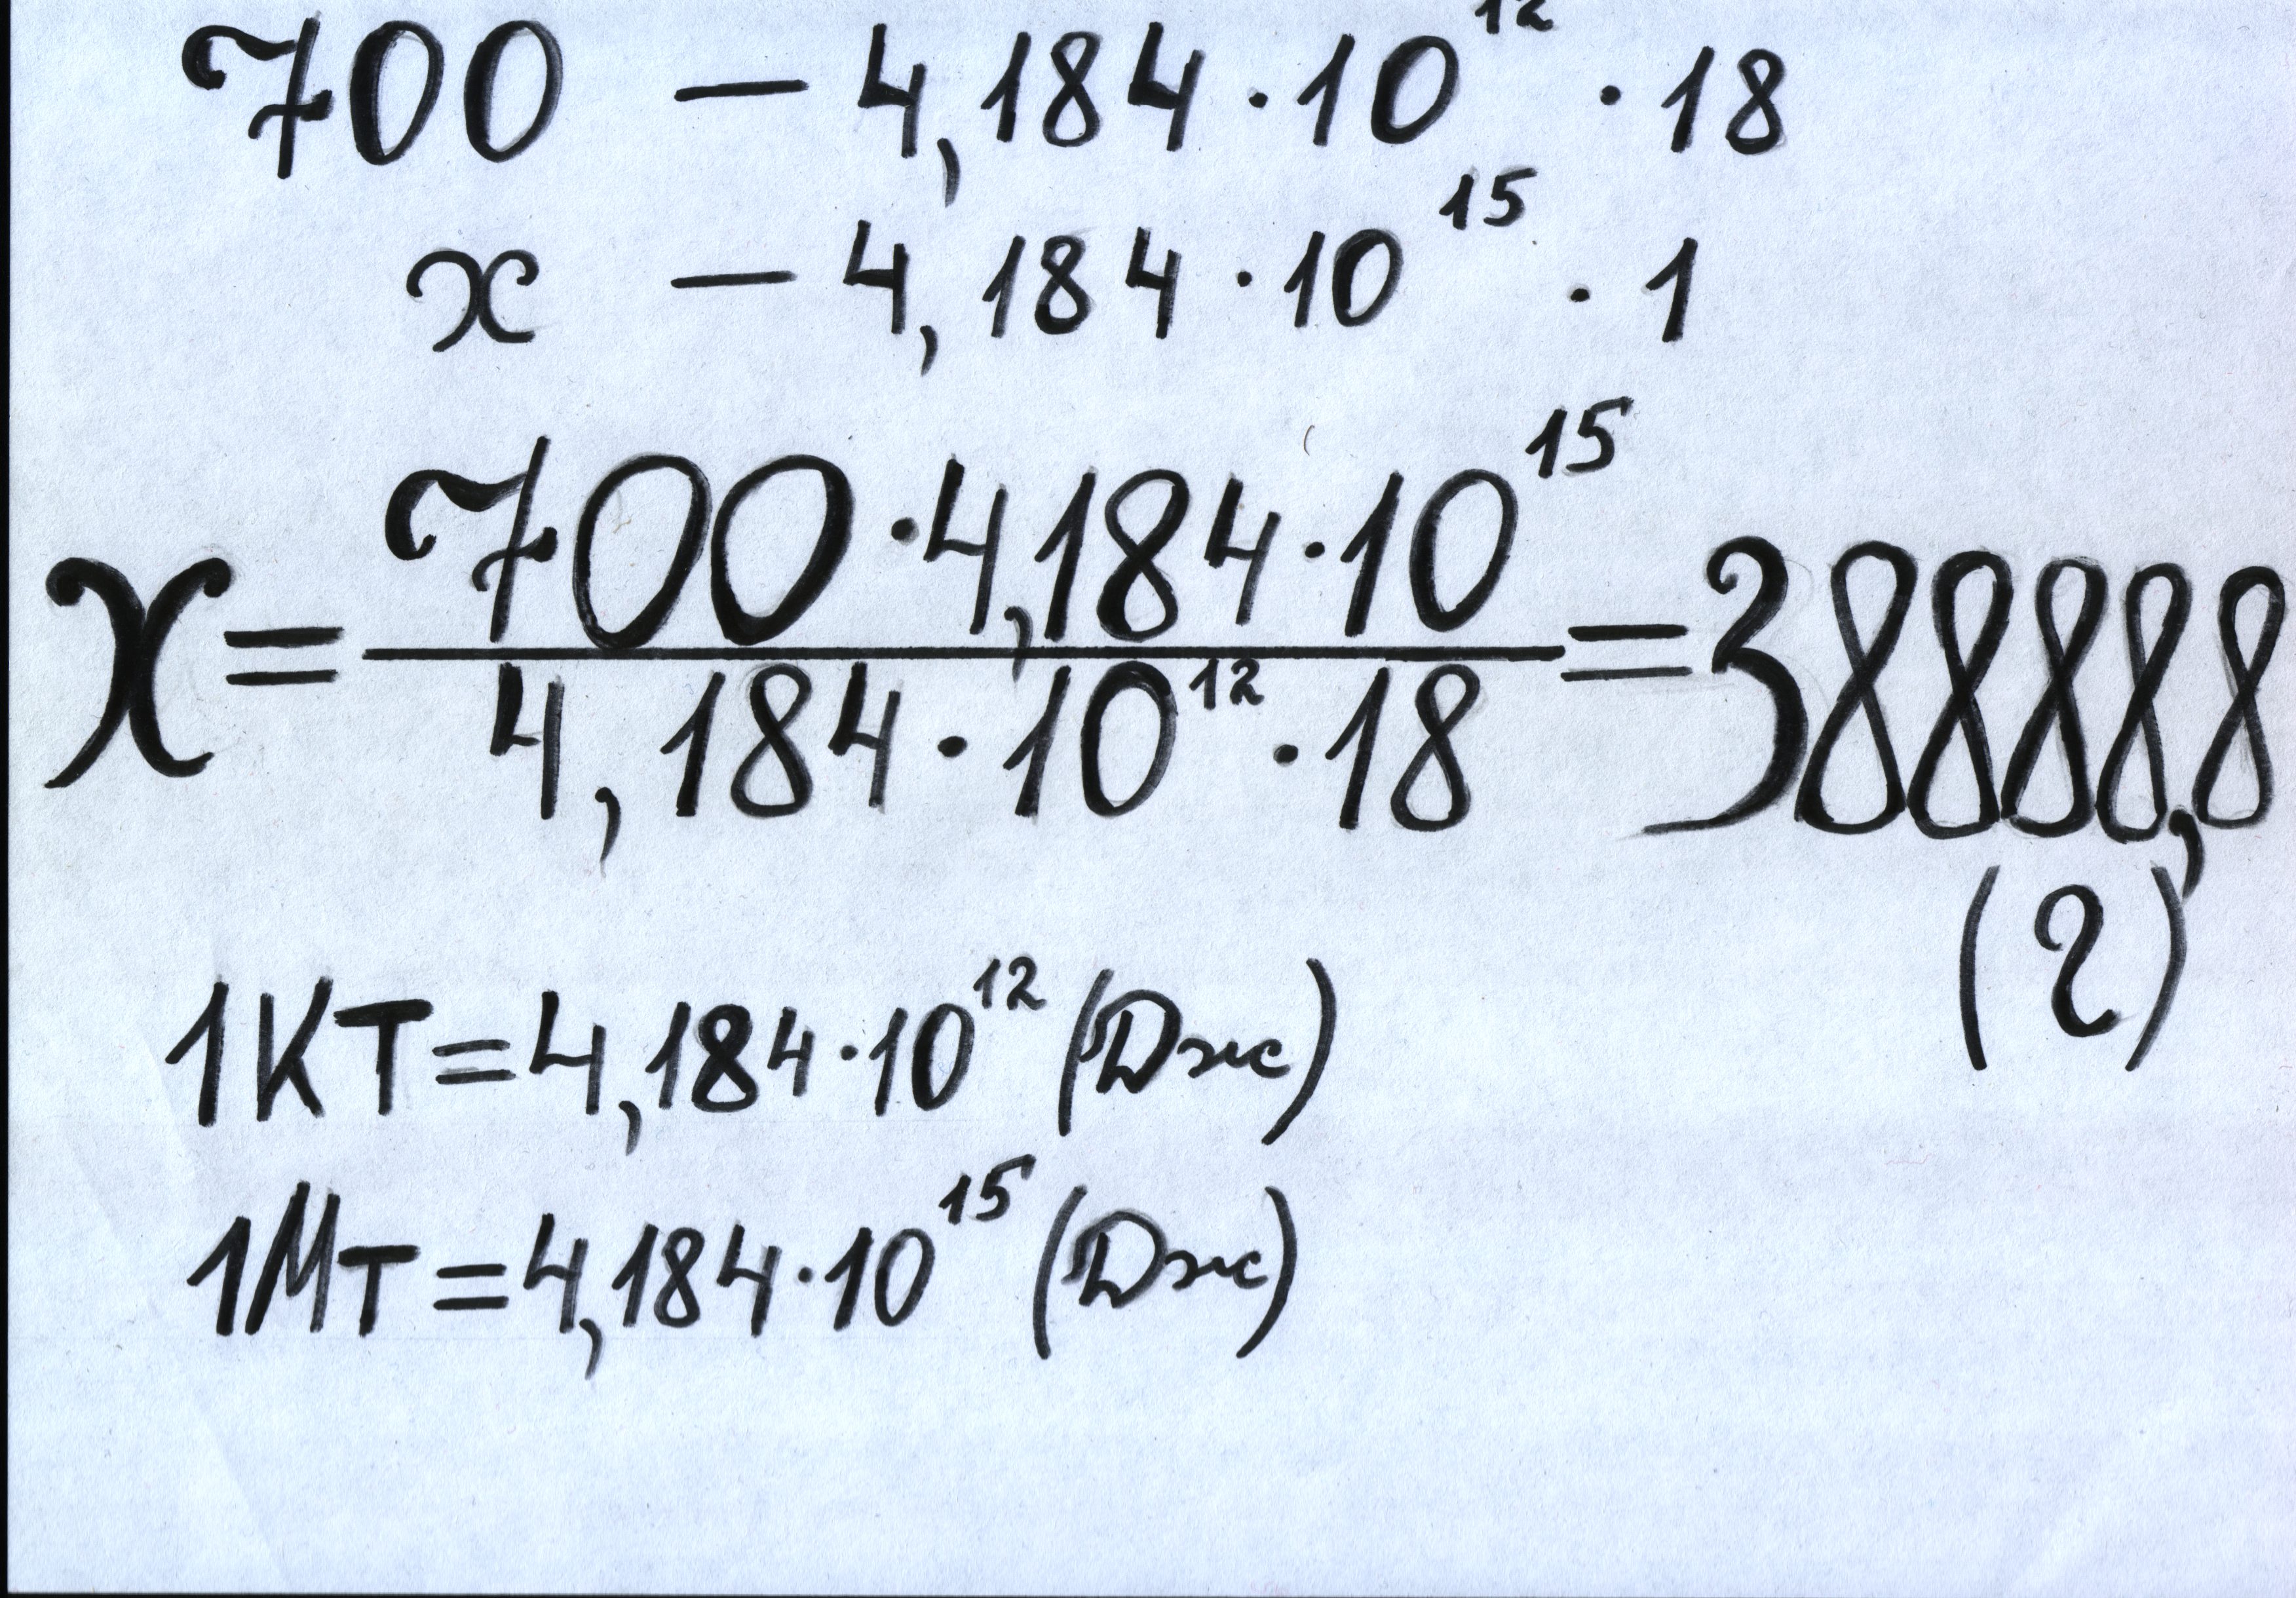 700 — 4,184·10¹² · 18
x — 4,184·10¹⁵ · 1
x = 700·4,184·10¹⁵ / 4,184·10¹²·18 = 38888,8
(г)
1КТ = 4,184·10¹² (Дж)
1МТ = 4,184·10¹⁵ (Дж)